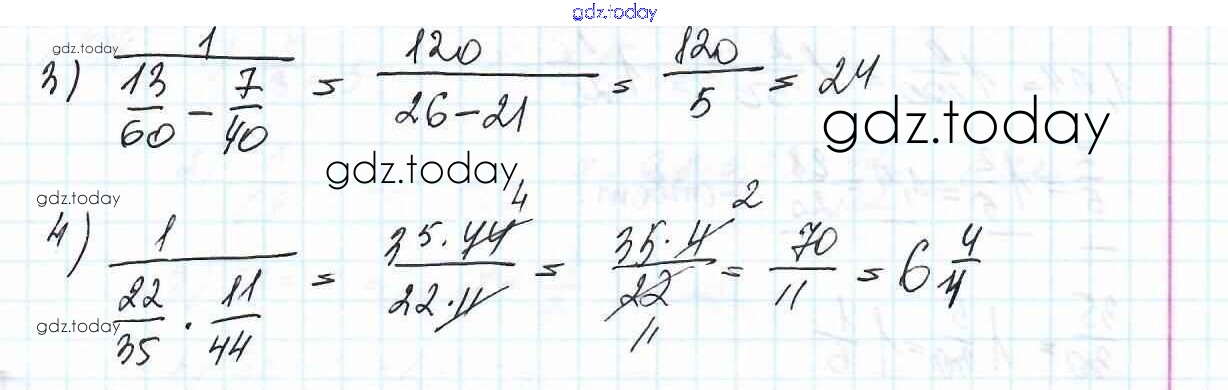 gdz.today
gdz.today
3) 1 / (13/60 − 7/40) = 120 / (26−21) = 120/5 = 24
gdz.today
gdz.today
gdz.today
4) 1 / (22/35 · 11/44) = 35·44 4 / 22·11 = 35·4 2 / 22 11 = 70/11 = 6 4/11
gdz.today